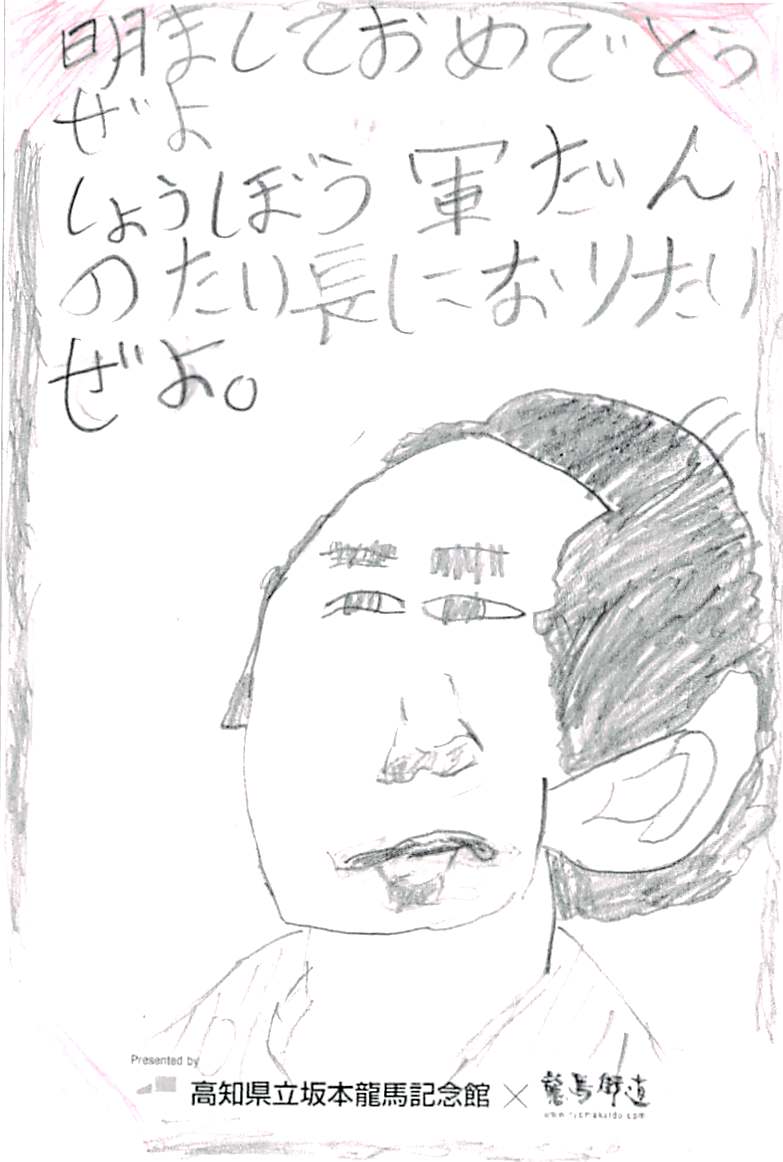 明ましておめでとう
ぜよ
しょうぼう軍だん
のたい長になりたい
ぜよ。
Presented by
高知県立坂本龍馬記念館×龍馬街道
www.ryomakaido.com